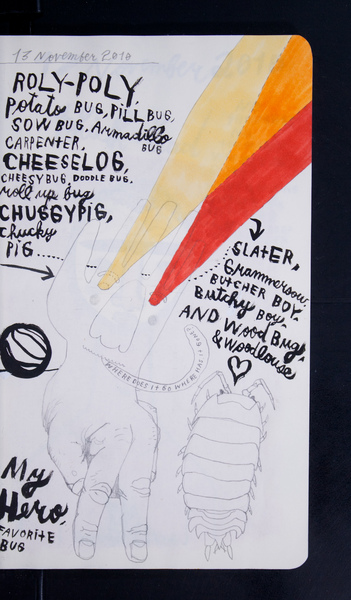 13 November 2010
ROLY-POLY,
Potato BUG, PILL BUG,
SOW BUG, Armadillo
BUG
CARPENTER,
CHEESELOG,
CHEESYBUG, DOODLE BUG,
roll up bug,
CHUGGYPIG,
Chucky
PIG
SLATER,
Grammersow,
BUTCHER BOY,
Butchy Boy,
AND Wood Bug,
& Woodlouse
WHERE DOES IT GO, WHERE HAS IT BEEN?
My
Hero,
FAVORITE
BUG